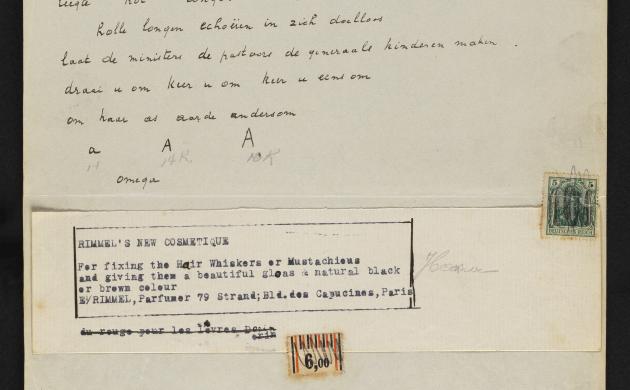 holle longen echoëen in zich doelloos
laat de ministers de pastoors de generaals kinderen maken.
draai u om keer u om keer u eens om
om haar as aarde andersom
a A A
14K 18K
omega
5 5
DEUTSCHES REICH
RIMMEL'S NEW COSMETIQUE
For fixing the Hair Whiskers or Mustachieus
and giving them a beautiful gloss & natural black
or brown colour
E/RIMMEL,Parfumer 79 Strand;Bld.des Capucines,Paris
du rouge pour les lèvres
6,00